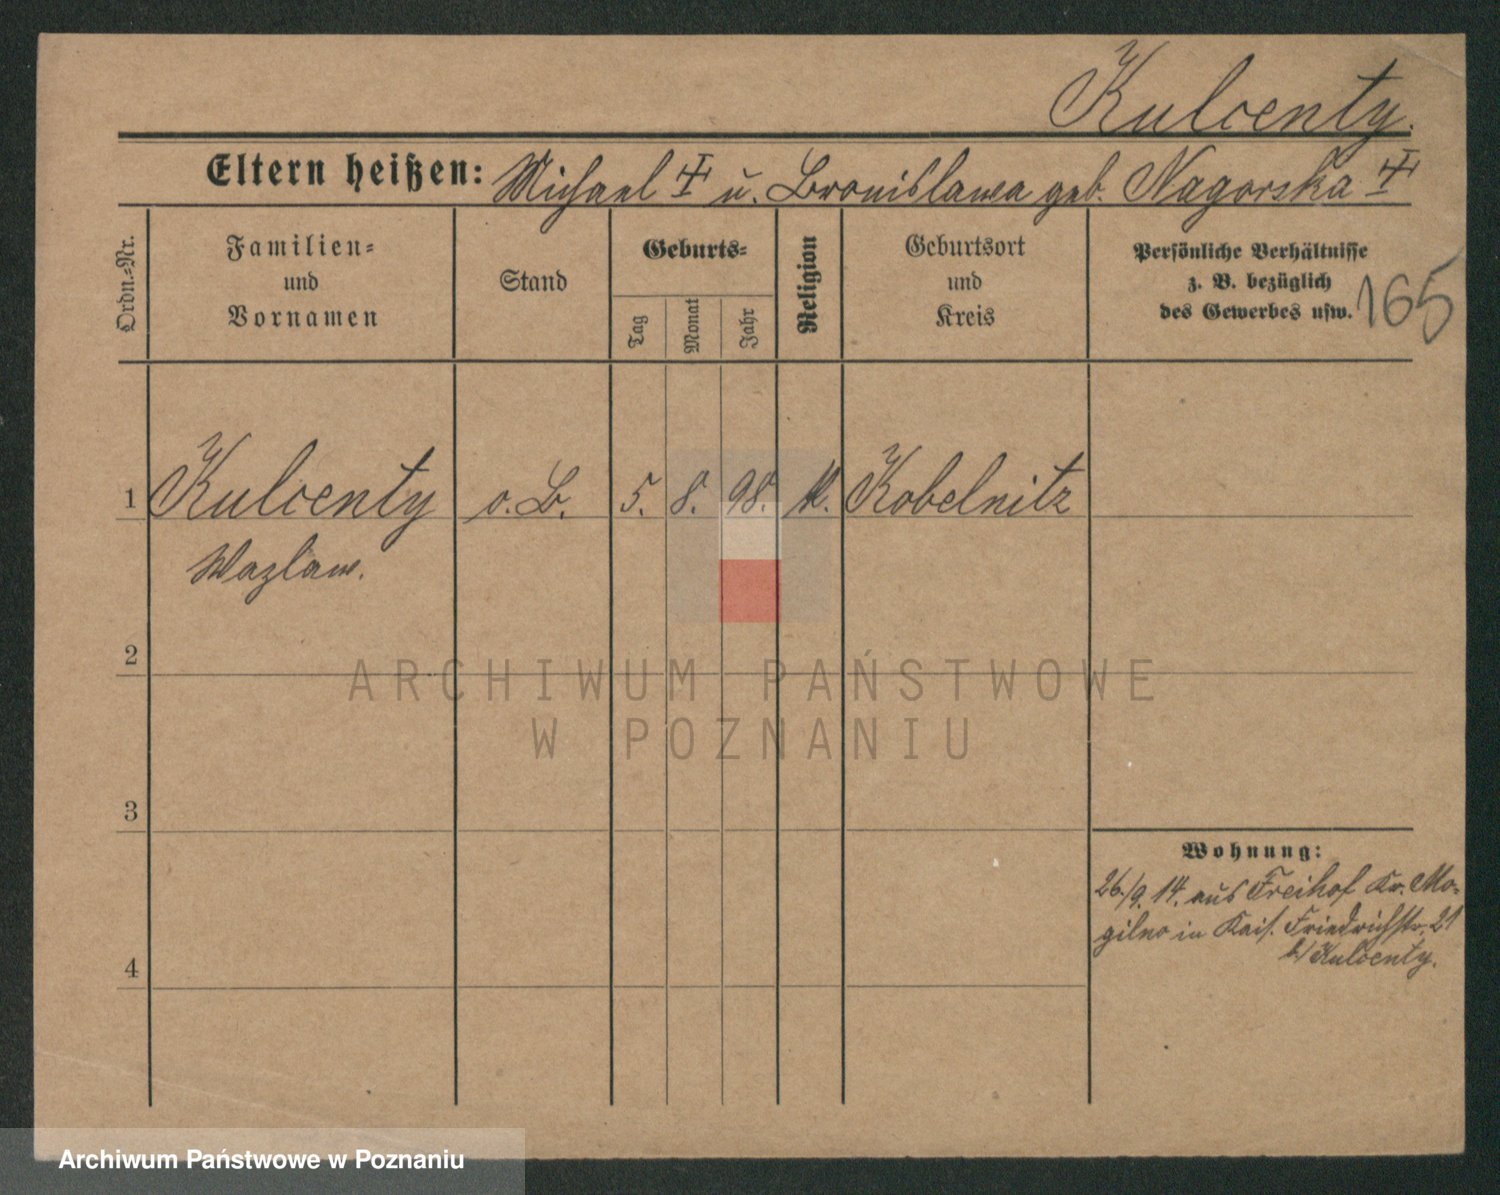 Kulcenty.
Eltern heißen: Michael ☩ u. Bronislawa geb. Nagorska ☩
Ordn.-Nr.
Familien-
und
Vornamen
Stand
Geburts-
Tag
Monat
Jahr
Religion
Geburtsort
und
Kreis
Persönliche Verhältnisse
z. B. bezüglich
des Gewerbes usw.
165
1 Kulcenty o. B. 5. 8. 98. K. Kobelnitz
Wazlaw.
2
ARCHIWUM PAŃSTWOWE
W POZNANIU
3
Wohnung:
26./9. 14. aus Freihof Kr. Mo-
gilno in Kais. Friedrichstr. 21
b/ Kulcenty.
4
Archiwum Państwowe w Poznaniu